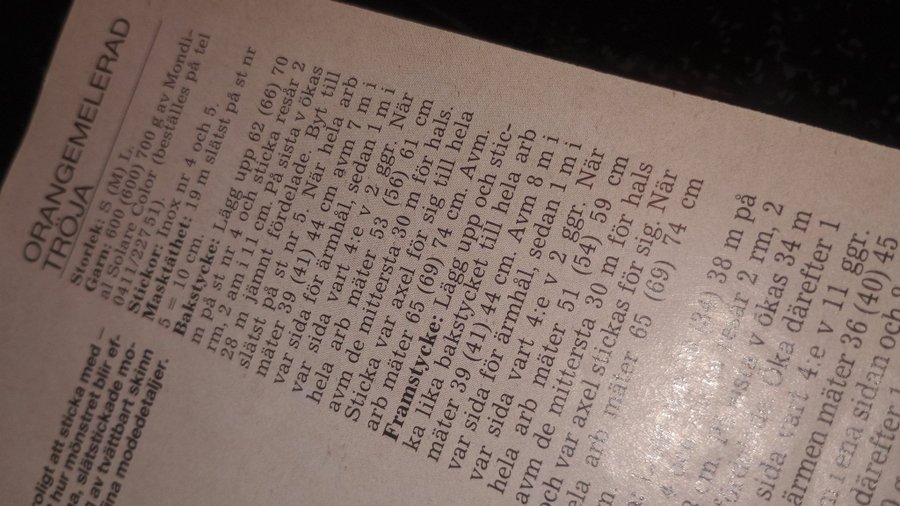 ORANGEMELERAD
TRÖJA
Storlek: S (M) L.
Garn: 600 (600) 700 g av Mondi-
al Solare Color (beställes på tel
0411/227 51).
Stickor: Inox, nr 4 och 5.
Masktäthet: 19 m slätst på st nr
5 = 10 cm.
Bakstycke: Lägg upp 62 (66) 70
m på st nr 4 och sticka resår 2
rm, 2 am i 11 cm. På sista v ökas
28 m jämnt fördelade. Byt till
slätst på st nr 5. När hela arb
mäter 39 (41) 44 cm avm 7 m i
var sida för ärmhål, sedan 1 m i
var sida vart 4:e v 2 ggr. När
hela arb mäter 53 (56) 61 cm
avm de mittersta 30 m för hals.
Sticka var axel för sig till hela
arb mäter 65 (69) 74 cm. Avm.
Framstycke: Lägg upp och stic-
ka lika bakstycket till hela arb
mäter 39 (41) 44 cm. Avm 8 m i
var sida för ärmhål, sedan 1 m i
var sida vart 4:e v 2 ggr. När
hela arb mäter 51 (54) 59 cm
avm de mittersta 30 m för hals
och var axel stickas för sig. När
ela arb mäter 65 (69) 74 cm
(34) 38 m på
resår 2 rm, 2
v ökas 34 m
Öka därefter 1
sida vart 4:e v 11 ggr.
ärmen mäter 36 (40) 45
i ena sidan och
därefter 1
roligt att sticka med –
hur mönstret blir ef-
a, slätstickade mo-
av tvättbart skinn
ina modedetaljer.